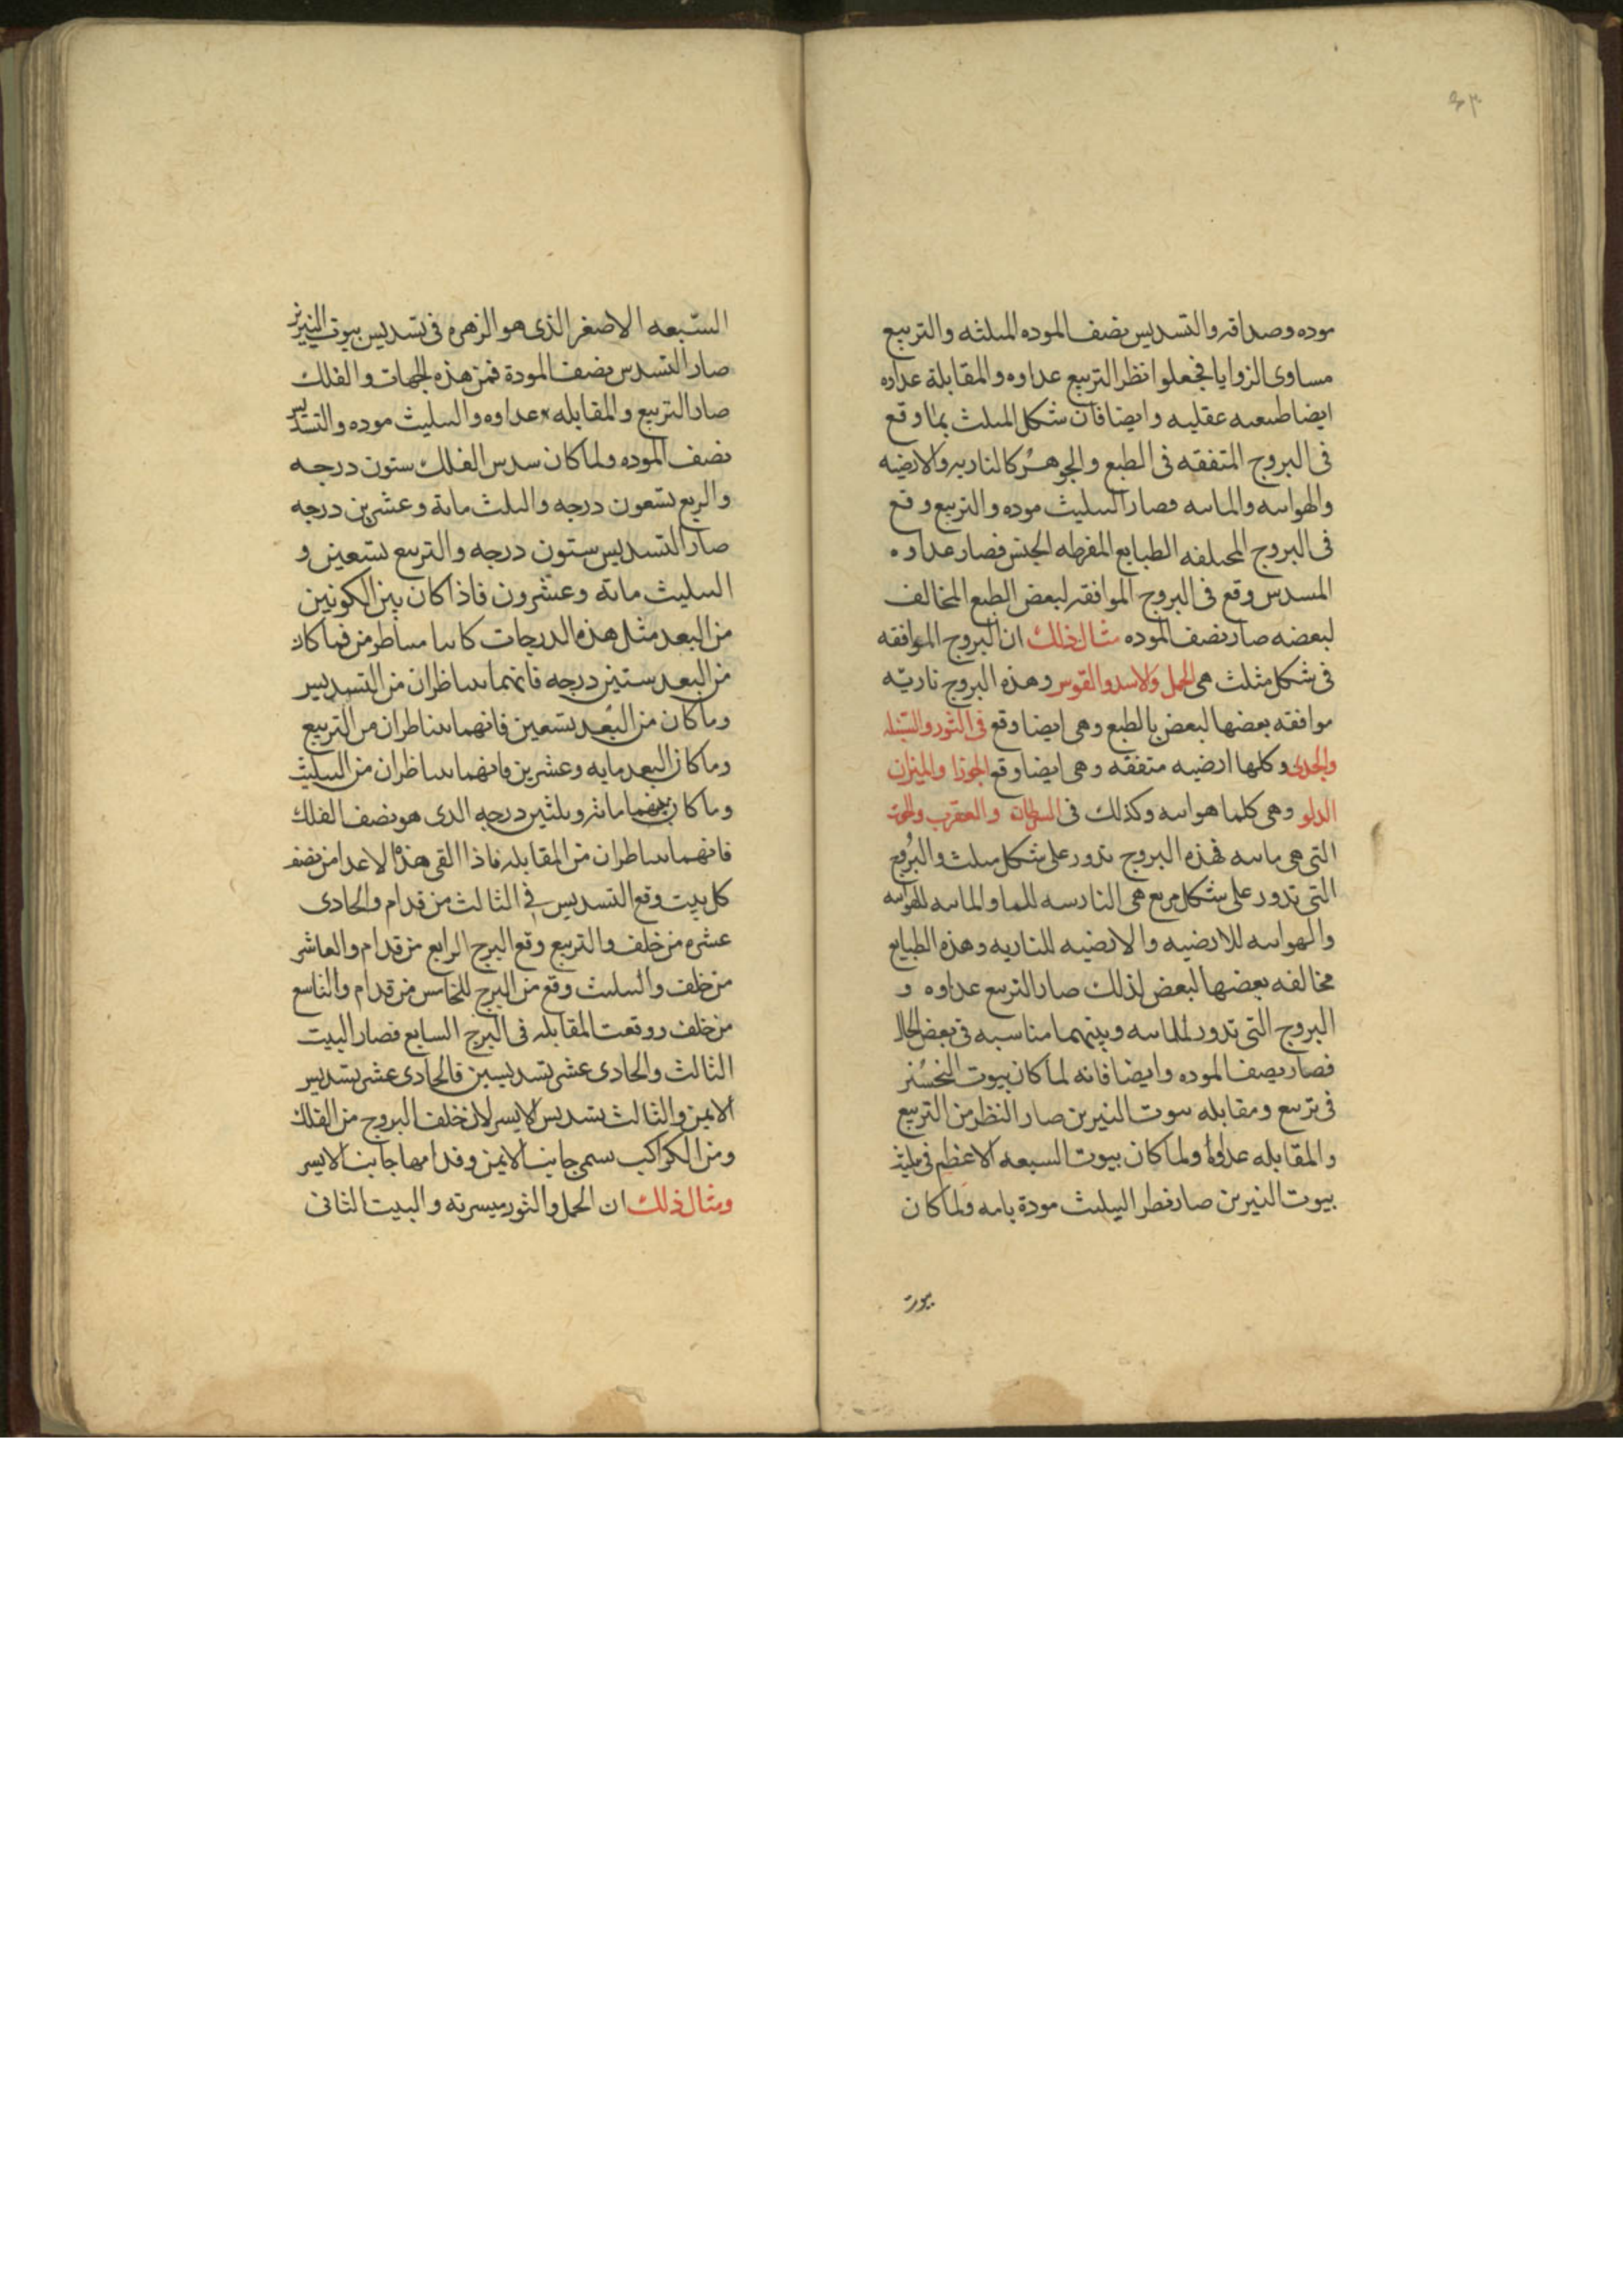 موده وصداقه والتسديس نصف الموده المثلثه والتربيع
مساوى الزوايا فجعلوا نظر التربيع عداوه والمقابلة عداوه
ايضا طبيعيه عقليه وايضا فان شكل المثلث بما وقع
فى البروج المتفقه فى الطبع والجوهر كالناريه والارضيه
والهوائيه والمائيه فصار التثليث موده والتربيع وقع
فى البروج المختلفه الطبايع المفرطه الجنس فصار عداوه
المسدس وقع فى البروج الموافقه لبعض الطبع المخالف
لبعضه صار نصف الموده مثال ذلك ان البروج الموافقه
فى شكل مثلث هى الحمل والاسد والقوس وهذه البروج ناريّه
موافقه بعضها لبعض بالطبع وهى ايضا وقع فى الثور والسنبله
والجدى وكلها ارضيه متفقه وهى ايضا وقع الجوزا والميزان
الدلو وهى كلها هوائيه وكذلك فى السرطان والعقرب والحوت
التى هى مائيه فهذه البروج تدور على شكل مثلث والبروج
التى تدور على شكل مربع هى النارسه للما والمائيه للهوائيه
والهوائيه للارضيه والارضيه للناريه وهذه الطبايع
مخالفه بعضها لبعض لذلك صار التربيع عداوه و
البروج التى تدور للمائيه وبينهما مناسبه فى بعض الحال
فصار نصف الموده وايضا فانه لما كان بيوت النحسين
فى تربيع ومقابله بيوت النيرين صار النظر من التربيع
والمقابله عداوة ولما كان بيوت السبعه الاعظم فى تثليث
بيوت النيرين صار نظر التثليث مودة تامه ولما كان
بيوت
السّبعه الاصغر الذى هو الزهره فى تسديس بيوت النيرين
صار التسدس نصف المودة فمن هذه الجهات والفلك
صار التربيع والمقابله عداوه والتثليث موده والتسديس
نصف الموده ولما كان سدس الفلك ستون درجه
والربع تسعون درجه والثلث مائة وعشرين درجه
صار التسديس ستون درجه والتربيع تسعين و
التثليث مائه وعشرون فاذا كان بين الكونين
من البعد مثل هذه الدرجات كانا متناظرين فما كان
من البعد ستين درجه فانهما يتناظران من التسديس
وما كان من البُعد تسعين فانهما يتناظران من التربيع
وما كان البعد مايه وعشرين فانهما يتناظران من التثليث
وما كان بينهما مائه وثلثين درجه الذى هو نصف الفلك
فانهما يتناظران من المقابله فاذا القى هذه الاعداد من نصف
كل بيت وقع التسديس فى الثالث من قدام والحادى
عشره من خلف والتربيع وقع البرج الرابع من قدام والعاشر
من خلف والتثليث وقع من البرج الخامس من قدام والتاسع
من خلف ووقعت المقابله فى البرج السابع فصار البيت
الثالث والحادى عشر تسديسين فالحادى عشر تسديس
الايمن والثالث تسديس الايسر لان خلف البروج من الفلك
ومن الكواكب يسمى جانب الايمن وقدامها جانب الايسر
ومثال ذلك ان الحمل والثور ميسرته والبيت الثانى